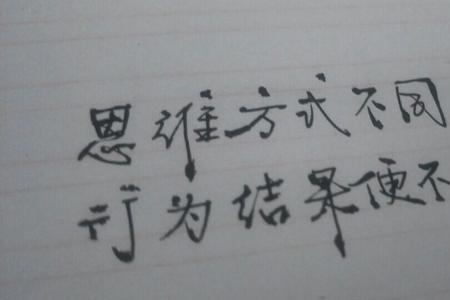 思维方式不同
行为结果便不